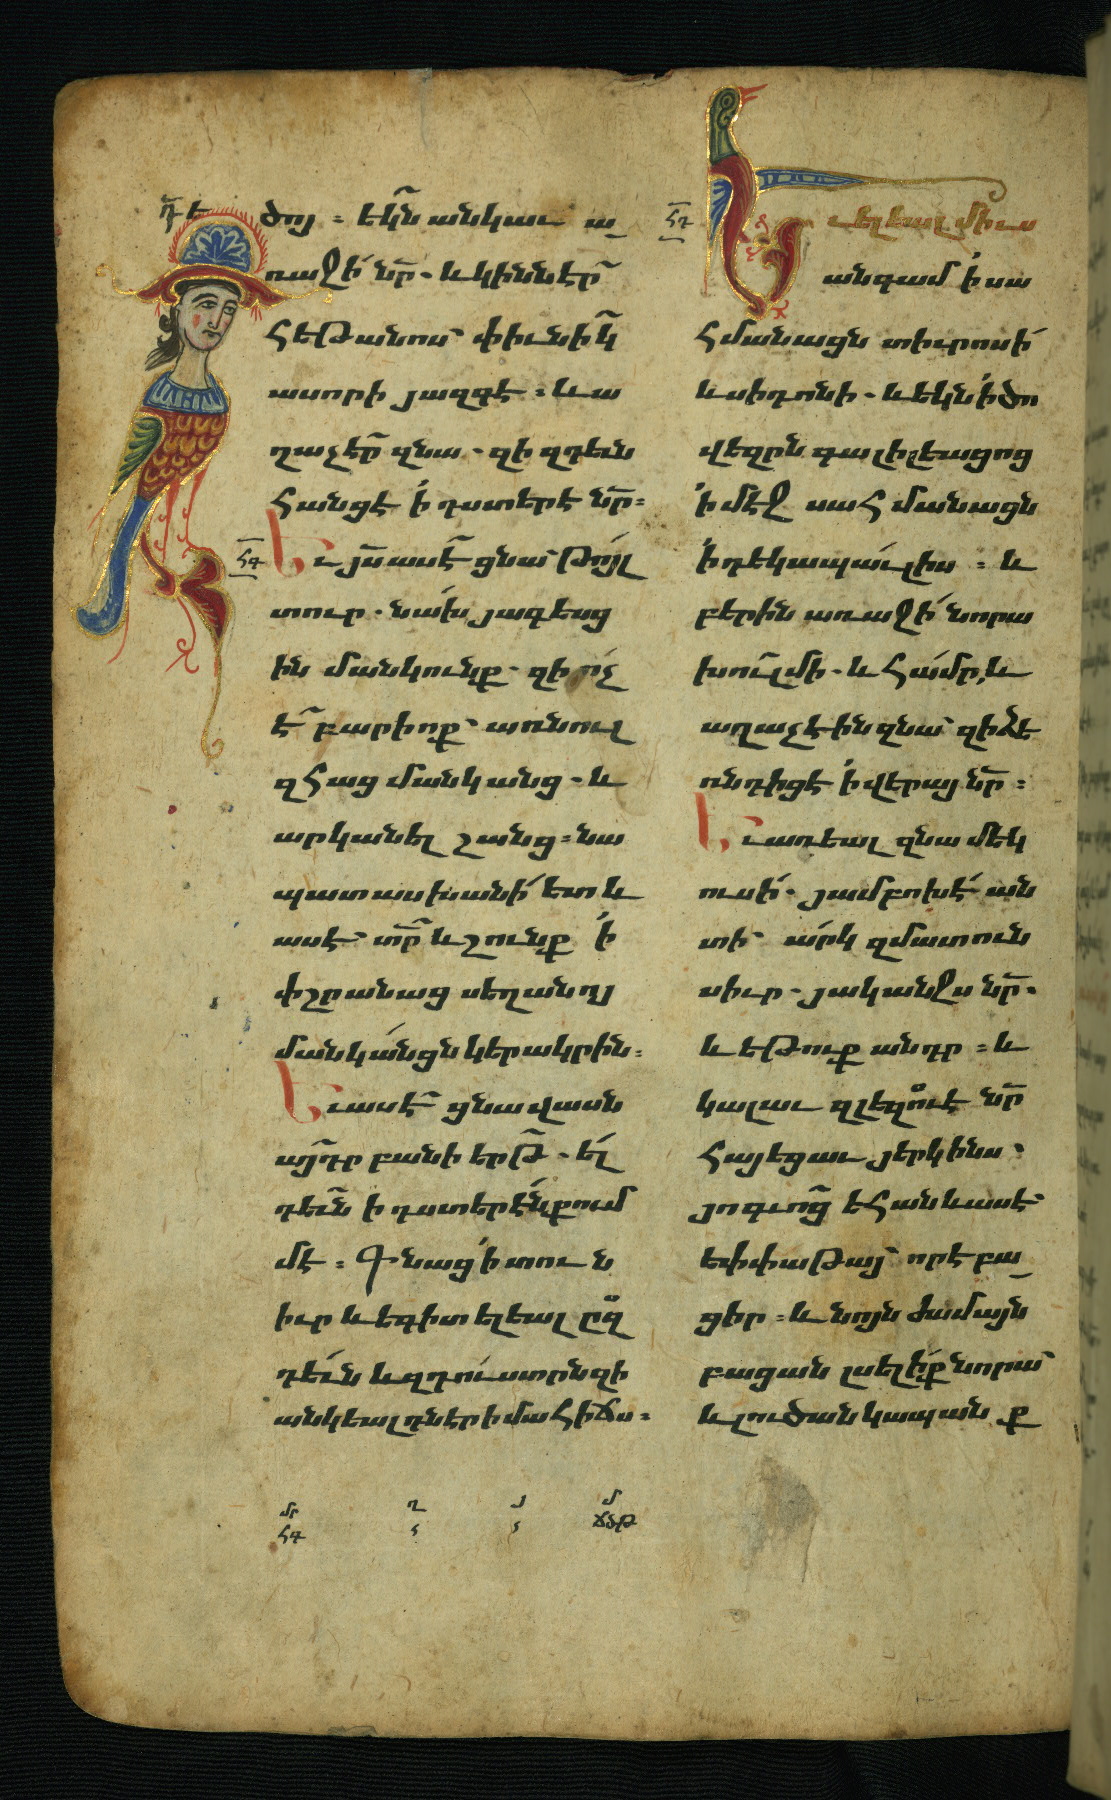 դե
ծոյ ։ եկն անկաւ ա
ռաջի նր . և կինն էր
հեթանոս փիւնիկ
ասորի յազգէ ։ և ա
ղաչէր զնա . զի զդեւն
հանցէ ի դստերէ նր ։
հգ
Եւ յս ասէ ցնա թոյլ
տուր . նախ յագեսց
ին մանկունք . զի ոչ
է բարիոք առնուլ
զհաց մանկանց . և
արկանել շանց ։ նա
պատասխանի ետ և
ասէ տր և շունք ի
փշրանաց սեղանոյ
մանկանցն կերակրին ։
Եւ ասէ ցնա վասն
այդր բանի երթ . ել
դեւն ի դստերէ քում
մէ ։ Գնաց ի տուն
իւր և եգիտ ելեալ ըզ
դեւն և զդուստրն զի
անկեալ դնէր ի մահիճս ։
հդ
Եւ ելեալ միւս
անգամ ի սա
հմանացն տիւրոսի
և սիդոնի . և եկն ի ծո
վեզրն գալիլեացոց
ի մէջ սահմանացն
ի դեկապաւլիս ։ և
բերին առաջի նորա
խուլ մի . և համր, և
աղաչէին զնա զի ձե
ռնդիցէ ի վերայ նր ։
Եւ առեալ զնա մեկ
ուսի . յամբոխէ ան
տի արկ զմատուն
սիւր . յականջս նր .
և եթուք անդր ։ և
կալաւ զլեզուէ նր
հայեցաւ յերկինս .
յոգւոց եհան և ասէ
եփփաթայ որ է բա
ցիր ։ և նոյն ժամայն
բացան լսելիք նորա
և լուծան կապանք
մր ղ յ մ
հգ ճծթ